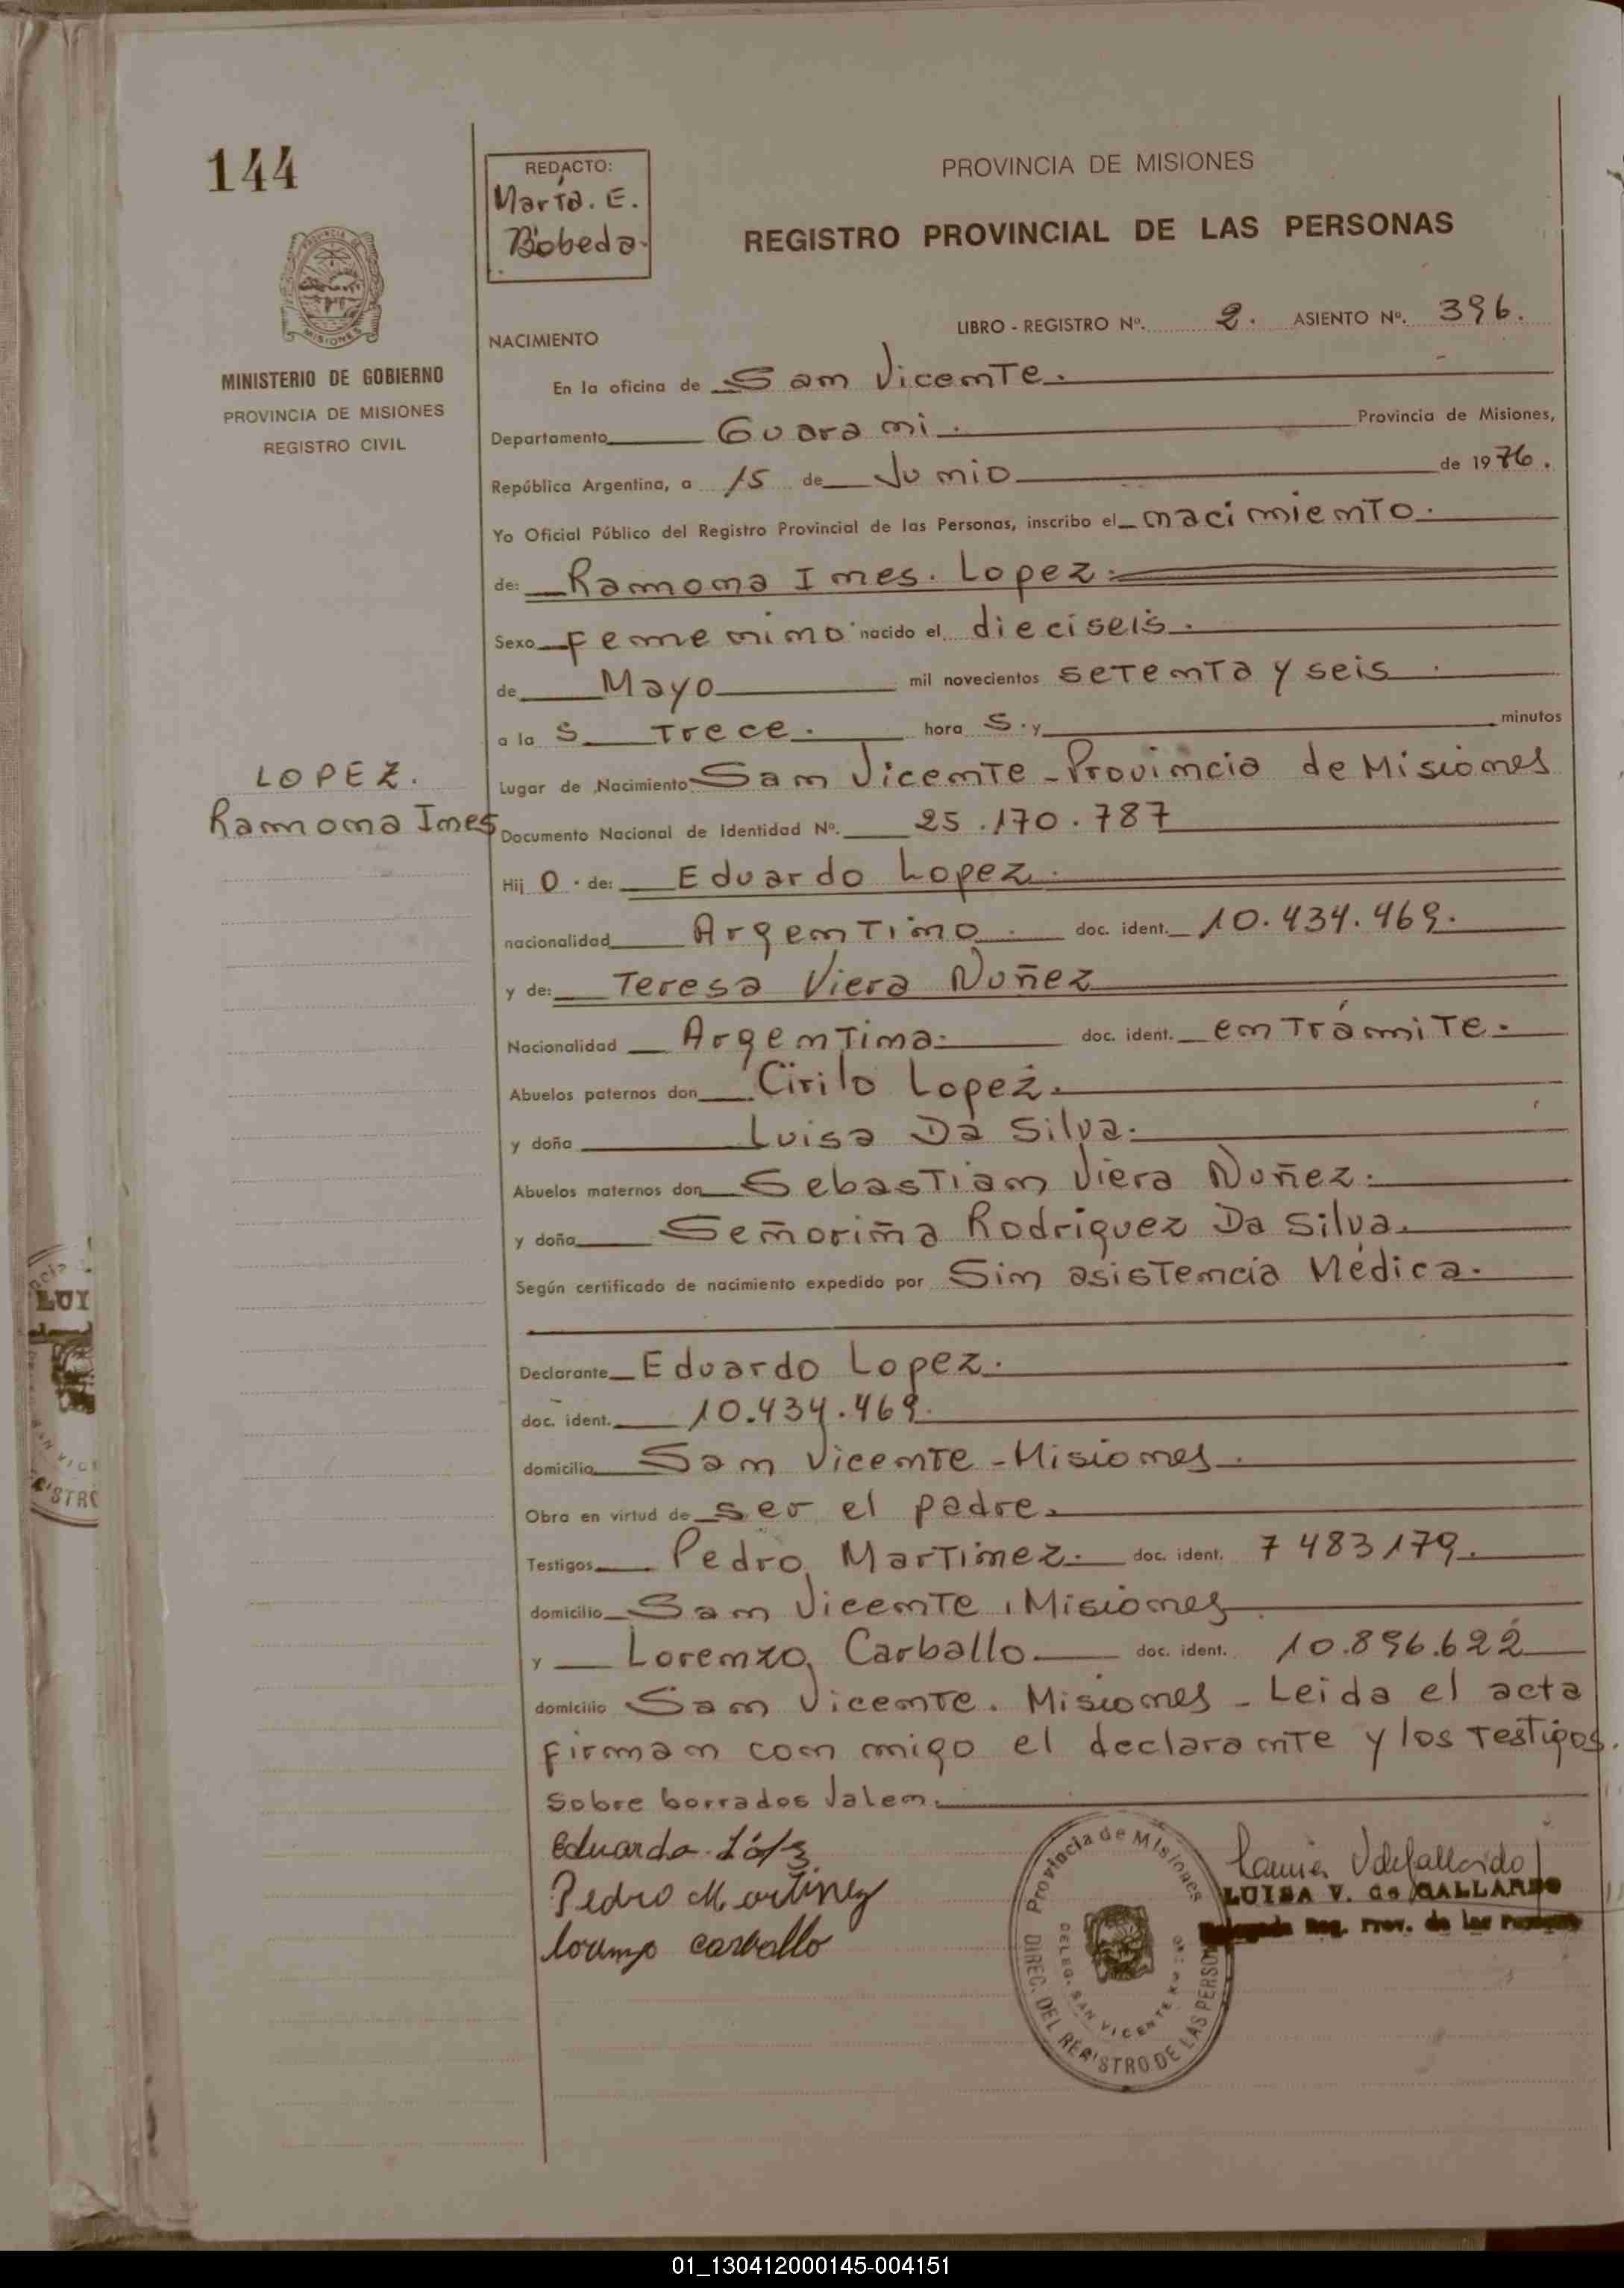 144
REDACTO:
María. E.
Bobeda.
PROVINCIA DE MISIONES
REGISTRO PROVINCIAL DE LAS PERSONAS
PROVINCIA DE
MISIONES
MINISTERIO DE GOBIERNO
PROVINCIA DE MISIONES
REGISTRO CIVIL
LIBRO - REGISTRO Nº. 2. ASIENTO Nº. 396.
NACIMIENTO
En la oficina de San Vicente.
Departamento Guarani. Provincia de Misiones,
República Argentina, a 15 de Junio de 1976.
Yo Oficial Público del Registro Provincial de las Personas, inscribo el nacimiento.
de: Ramona Ines. Lopez.
Sexo Femenino nacido el dieciseis.
de Mayo mil novecientos setenta y seis.
a la s Trece. hora s. y minutos
Lugar de Nacimiento San Vicente - Provincia de Misiones
LOPEZ.
Ramona Ines
Documento Nacional de Identidad Nº. 25.170.787
Hij o. de: Eduardo Lopez.
nacionalidad Argentino. doc. ident. 10.434.469.
y de: Teresa Viera Nuñez
Nacionalidad Argentina. doc. ident. en Trámite.
Abuelos paternos don Cirilo Lopez.
y doña Luisa Da Silva.
Abuelos maternos don Sebastian Viera Nuñez.
y doña Señoriña Rodriguez Da Silva.
Según certificado de nacimiento expedido por Sin asistencia Médica.
Declarante Eduardo Lopez.
doc. ident. 10.434.469.
domicilio San Vicente - Misiones.
Obra en virtud de ser el padre.
Testigos Pedro, Martinez. doc. ident. 7 483179.
domicilio San Vicente, Misiones
y Lorenzo, Carballo doc. ident. 10.896.622
domicilio San Vicente. Misiones - Leida el acta
firman con migo el declarante y los testigos.
Sobre borrados Valen.
Eduardo Lópz
Pedro Martinez
Lorenzo carballo
LUISA V. de GALLARDO
Delegada Reg. Prov. de las Personas
Provincia de Misiones
DIREC. DEL REGISTRO DE LAS PERSON
DELEG. SAN VICENTE
LUI
SAN VICE
ISTRO
01_130412000145-004151